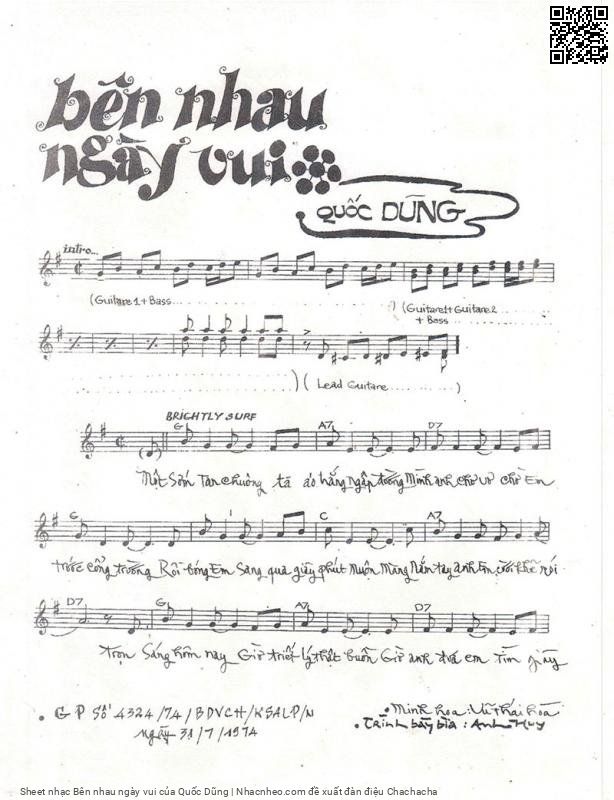 bên nhau
ngày vui
QUỐC DŨNG
intro...
(Guitare 1 + Bass ... ) (Guitare1 + Guitare 2
+ Bass
) ( Lead Guitare ... )
BRIGHTLY SURF
G A7 D7
Một Sớm Tan chuông tà áo trắng ngập đường Mình anh chờ vờ chờ Em
G C A7
trước cổng trường Rồi bóng Em Sang qua giây phút Muộn Màng Nắm tay anh Em cười khẽ nói
D7 G A7 D7
trọn Sáng hôm nay Giờ triết lý thật buồn Giờ anh đưa em tìm
• G P Số 4324/74/BDVCH/KSALP/N
Ngày 31/7/1974
• Minh họa : Vũ thái hòa
• Trình bày bìa : Anh Huy
Sheet nhạc Bên nhau ngày vui của Quốc Dũng | Nhacnheo.com đề xuất đàn điệu Chachacha